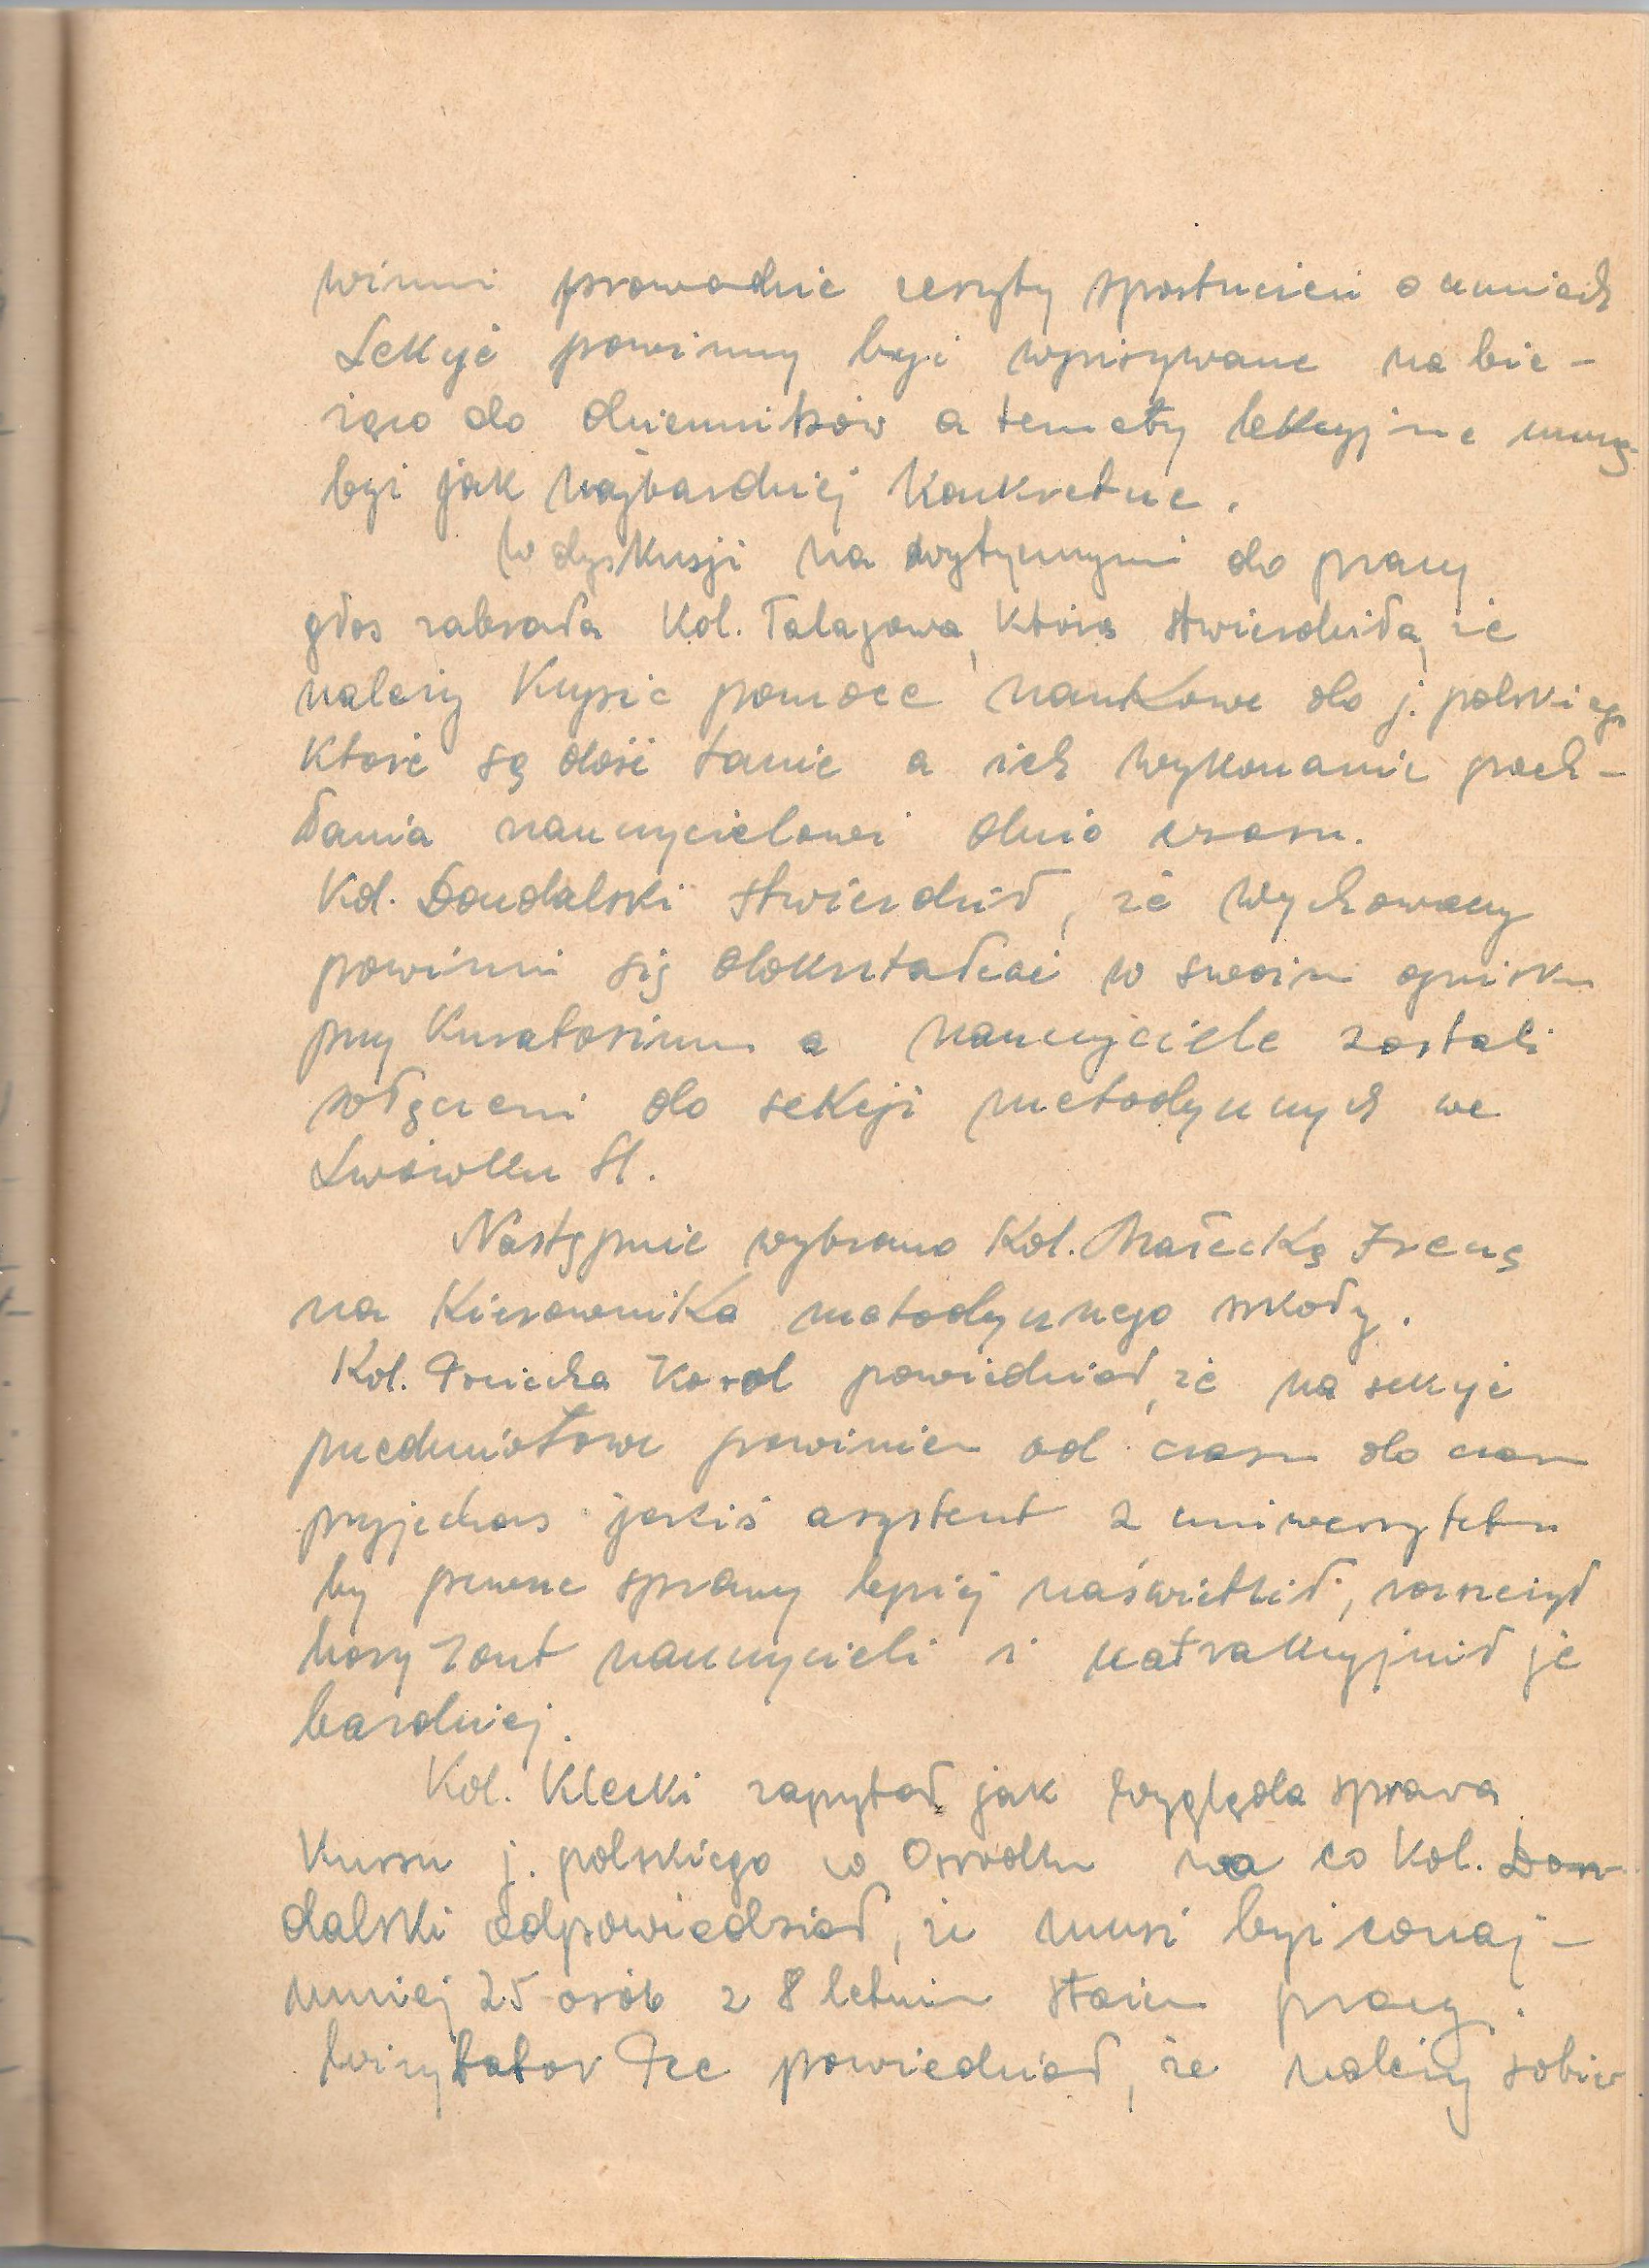 winni prowadzić zeszyty spostrzeżeń o uczniach
Lekcje powinny być wpisywane na bie-
żąco do dzienników a tematy lekcyjne muszą
być jak najbardziej konkretne.
W dyskusji na wytycznymi do pracy
głos zabrała Kol. Talagowa, która stwierdziła, że
należy kupić pomoce naukowe do j. polskiego
które są dość tanie a ich wykonanie poch-
łania nauczycielowi dużo czasu.
Kol. Dondalski stwierdził, że wychowawcy
powinni się dokształcać w swoim ognisku
przy Kuratorium a nauczyciele zostali
włączeni do sekcji metodycznych we
Lwówku Śl.
Następnie wybrano Kol. Małecką Irenę
na kierownika metodycznego szkoły.
Kol. Karol powiedział, że na sekcje
przedmiotowe powinien od czasu do czasu
przyjechać jakiś asystent z uniwersytetu
by pewne sprawy lepiej naświetlił, rozszerzył
horyzont nauczycieli i uatrakcyjnił je
bardziej.
Kol. Klecki zapytał, jak wygląda sprawa
kursu j. polskiego w Ośrodku na co Kol. Don-
dalski odpowiedział, że musi być conaj-
mniej 25 osób z 8 letnim stażem pracy.
Wizytator Tec powiedział, że należy sobie